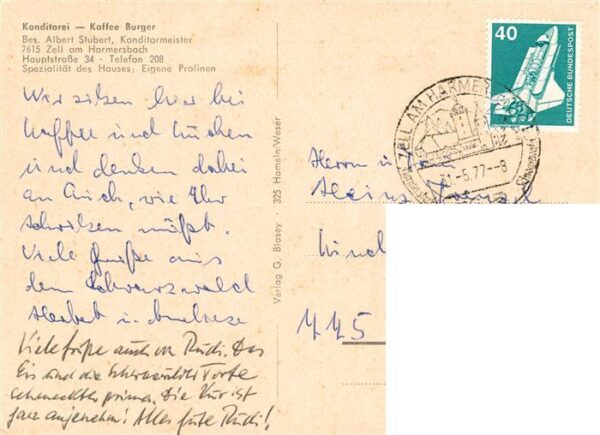 Konditorei — Kaffee Burger
Bes. Albert Stubert, Konditormeister
7615 Zell am Harmersbach
Hauptstraße 34 · Telefon 208
Spezialität des Hauses: Eigene Pralinen
Wir sitzen hier bei
Kaffee und Kuchen
und denken dabei
an Euch, wie Ihr
schwitzen müßt.
Viele Grüße aus
dem Schwarzwald
Herbert u. Anneliese
Viele Grüße auch von Rudi. Das
Eis und die Schwarzwälder Torte
schmeckten prima. Die Kur ist
ganz angenehm! Alles Gute Rudi!
Verlag G. Blasey · 325 Hameln/Weser
40
DEUTSCHE BUNDESPOST
ZELL AM HARMERSBACH
31.-5.77--8
Herrn u.
Heinz
445